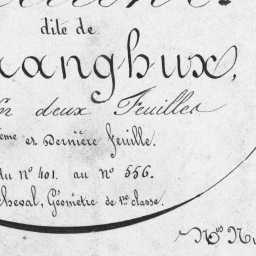 dite de
anghux,
deux Feuilles
ème et Dernière feuille.
du N° 401. au N° 556.
cheval, Géomètre de 1re classe.
Nos